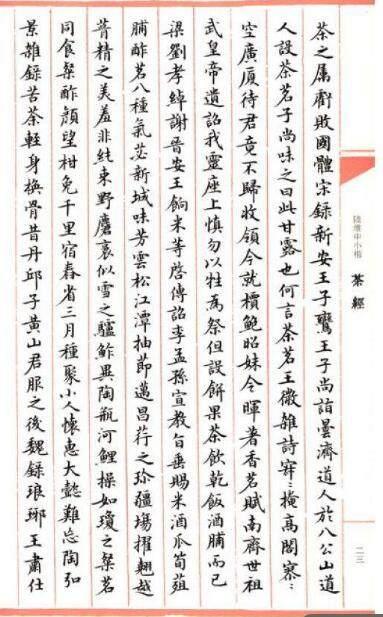 陸維中小楷
茶經
二三
茶之屬虧敗國體宗錄新安王子鸞王子尚詣曇濟道人於八公山道
人設茶茗子尚味之曰此甘露也何言茶茗王微雜詩寂:掩高閣寥:
空廣厦待君竟不歸收領今就檟鮑昭妹令暉著香茗賦南齊世祖
武皇帝遺詔我靈座上慎勿以牲為祭但設餅果茶飲乾飯酒脯而已
梁劉孝綽謝晉安王餉米等啓傳詔李孟孫宣教旨垂賜米酒瓜筍菹
脯酢茗八種氣苾新城味芳雲松江潭抽節邁昌荇之珍疆場擢翹越
葺精之美羞非純束野麏裛似雪之驢鮓異陶瓶河鯉操如瓊之粲茗
同食粲酢顏望柑免千里宿舂省三月種聚小人懷惠大懿難忘陶弘
景雜錄苦荼輕身換骨昔丹邱子黃山君服之後魏錄琅琊王肅仕